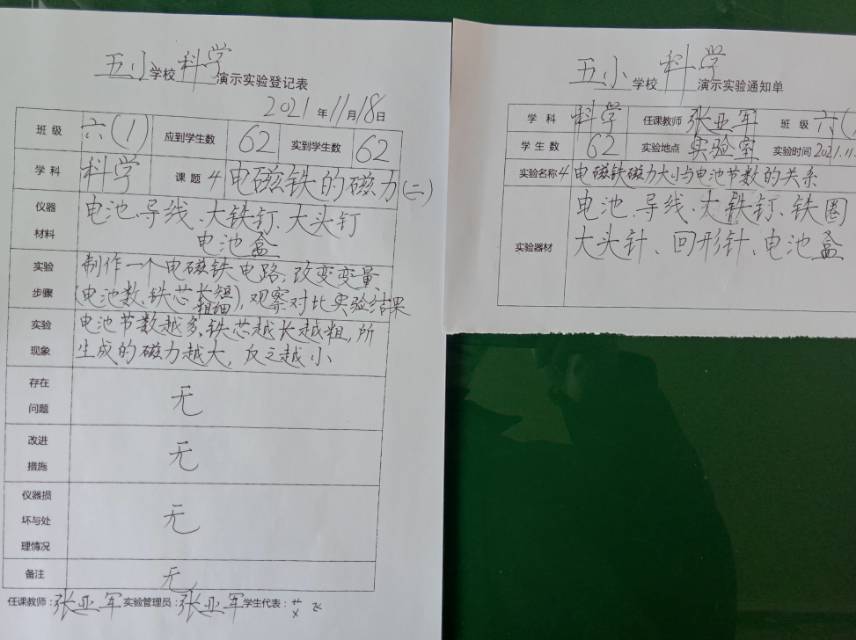 五小学校科学演示实验登记表
2021年11月18日
班级 六(1) 应到学生数 62 实到学生数 62
学科 科学 课题 4 电磁铁的磁力(二)
仪器材料 电池、导线、大铁钉、大头钉
电池盒
实验步骤 制作一个电磁铁电路,改变变量,
(电池数、铁芯长短粗细),观察对比实验结果
实验现象 电池节数越多,铁芯越长越粗,所
生成的磁力越大,反之越小
存在问题 无
改进措施 无
仪器损坏与处理情况 无
备注 无
任课教师:张亚军 实验管理员:张亚军 学生代表:
五小学校科学演示实验通知单
学科 科学 任课教师 张亚军 班级 六(
学生数 62 实验地点 实验室 实验时间 2021.11.
实验名称 4 电磁铁磁力大小与电池节数的关系
实验器材 电池、导线、大铁钉、铁圈
大头针、回形针、电池盒